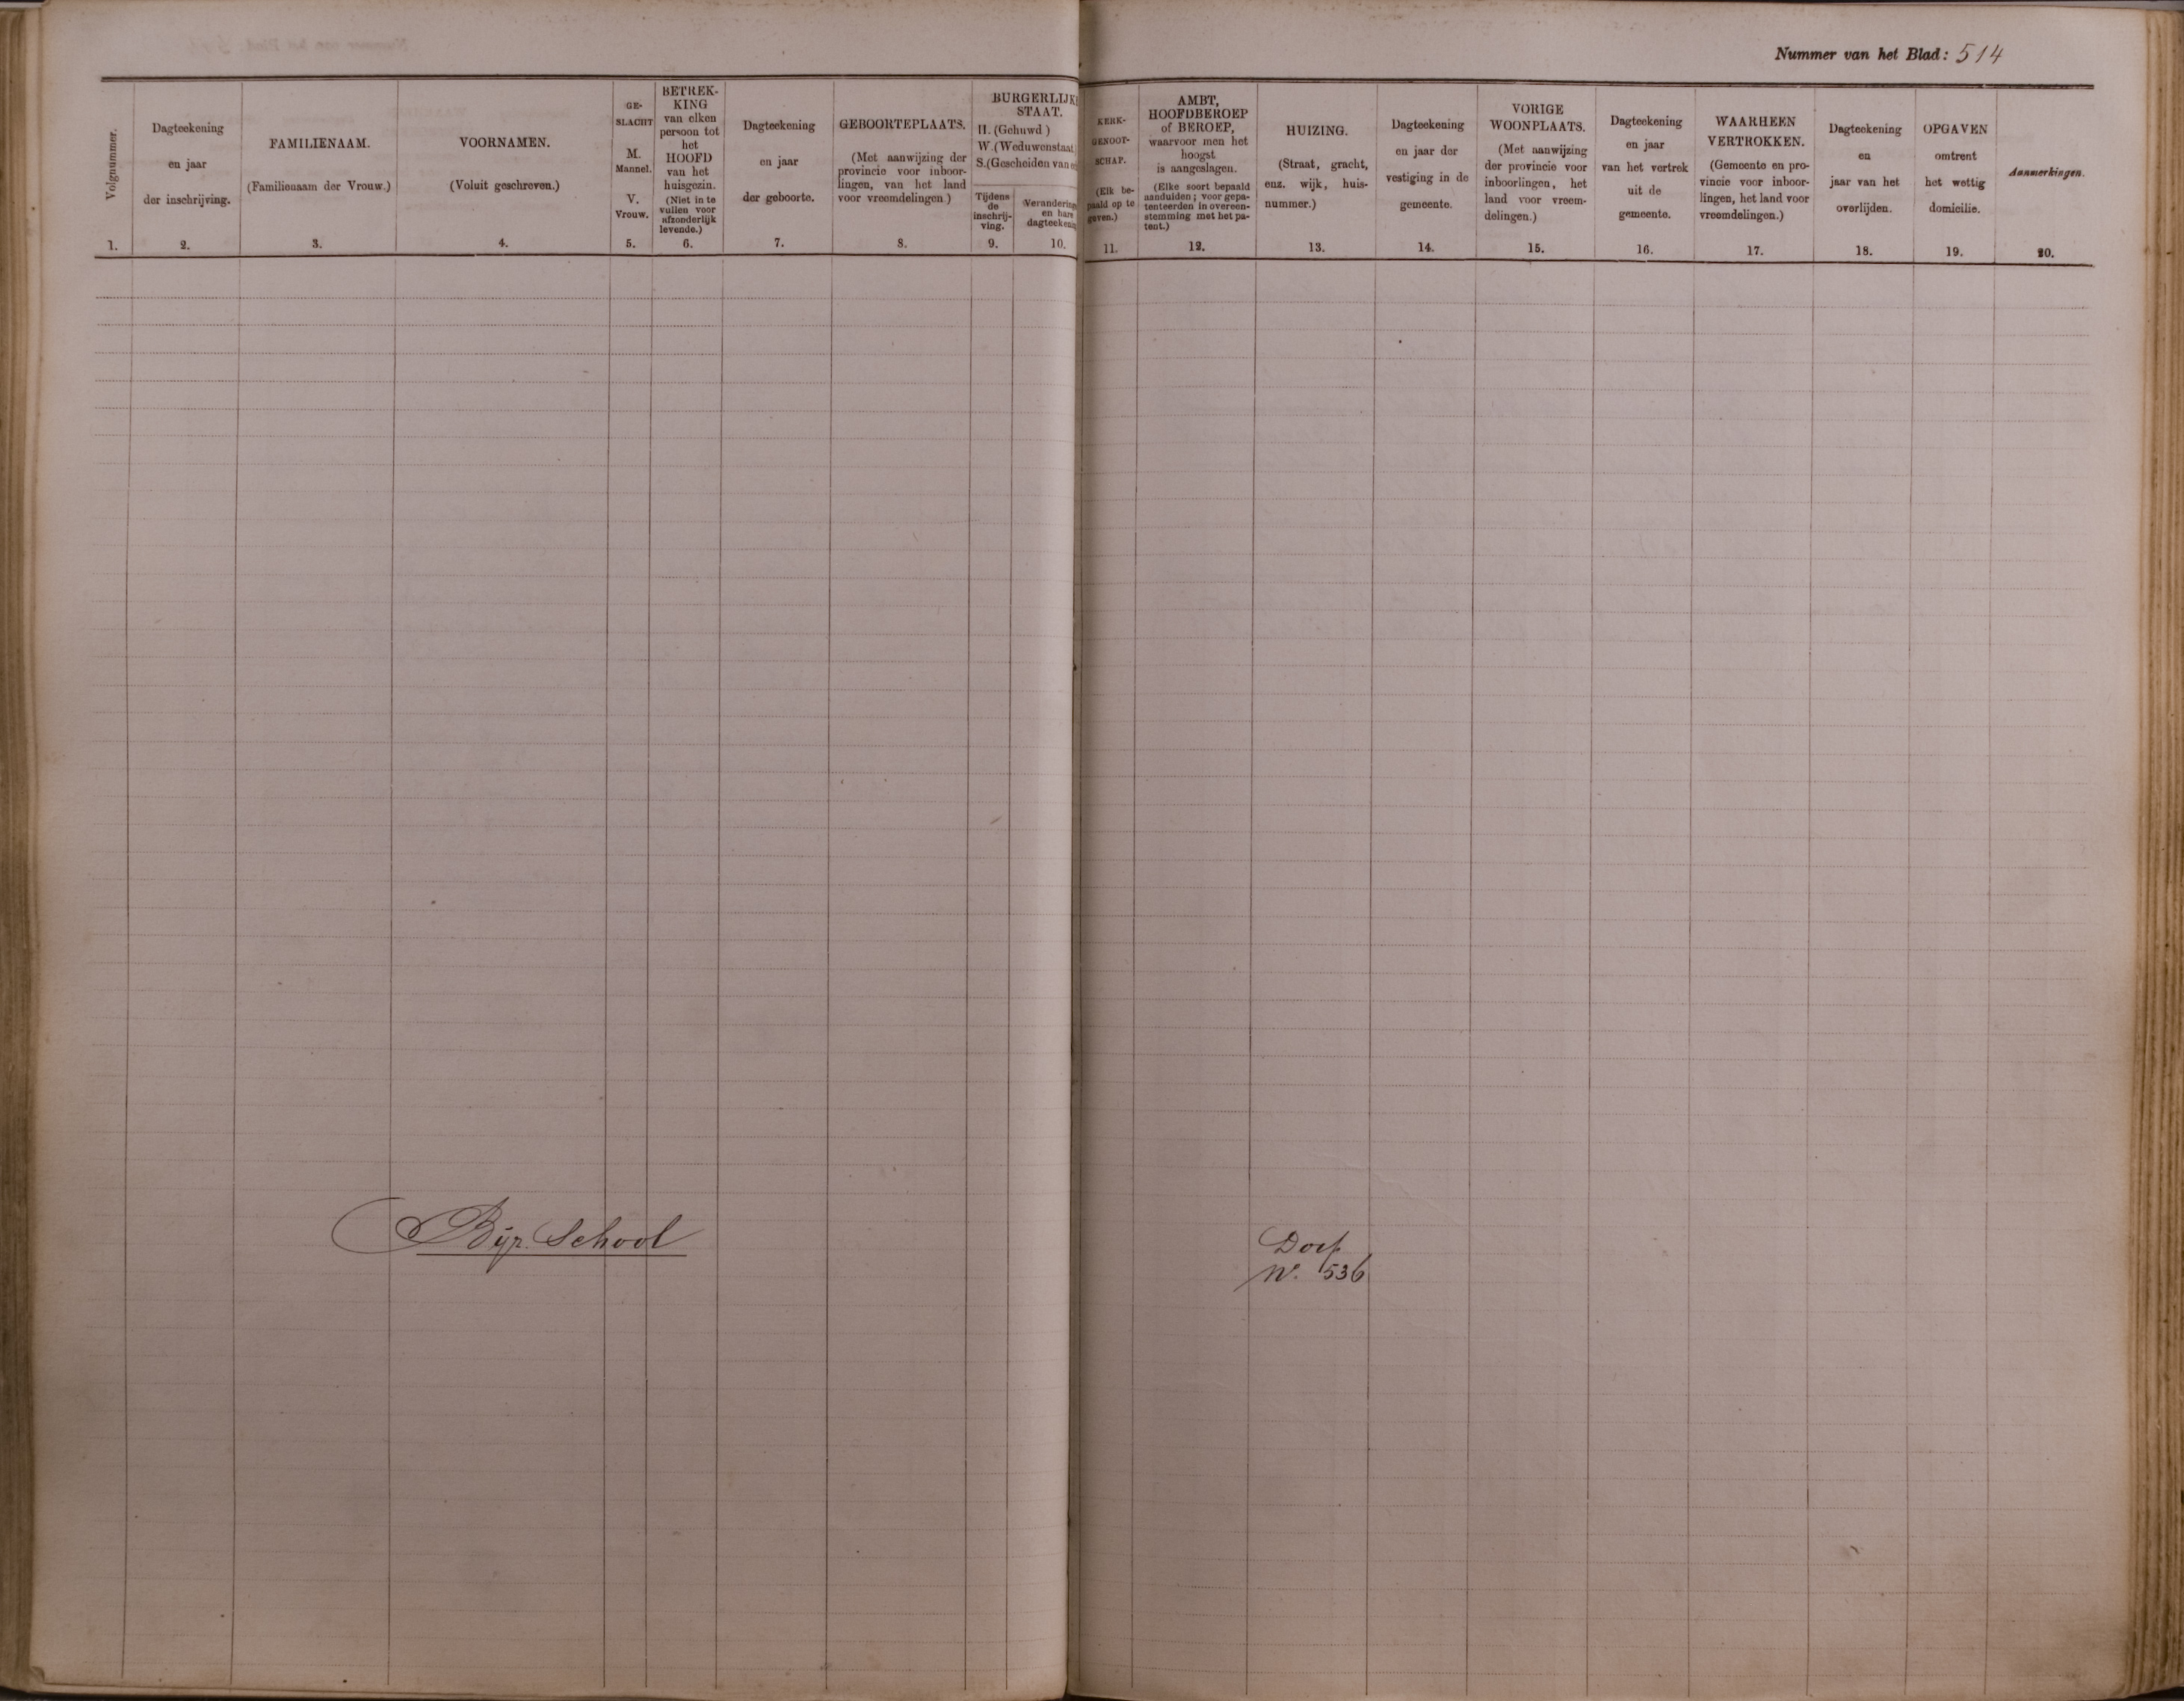 Nummer van het Blad: 514
Volgnummer.
1.
Dagteekening
en jaar
der inschrijving.
2.
FAMILIENAAM.
(Familienaam der Vrouw.)
3.
VOORNAMEN.
(Voluit geschreven.)
4.
GE-
SLACHT
M.
Mannel.
V.
Vrouw.
5.
BETREK-
KING
van elken
persoon tot
het
HOOFD
van het
huisgezin.
(Niet in te
vullen voor
afzonderlijk
levende.)
6.
Dagteekening
en jaar
der geboorte.
7.
GEBOORTEPLAATS.
(Met aanwijzing der
provincie voor inboor-
lingen, van het land
voor vreemdelingen.)
8.
BURGERLIJKE
STAAT.
H. (Gehuwd)
W. (Weduwenstaat
S. (Gescheiden van
Tijdens
de
inschrij-
ving.
9.
Verandering
en hare
dagteekening
10.
KERK-
GENOOT-
SCHAP.
(Elk be-
paald op te
geven.)
11.
AMBT,
HOOFDBEROEP
of BEROEP,
waarvoor men het
hoogst
is aangeslagen.
(Elke soort bepaald
aanduiden; voor gepa-
tenteerden in overeen-
stemming met het pa-
tent.)
12.
HUIZING.
(Straat, gracht,
enz. wijk, huis-
nummer.)
13.
Dagteekening
en jaar der
vestiging in de
gemeente.
14.
VORIGE
WOONPLAATS.
(Met aanwijzing
der provincie voor
inboorlingen, het
land voor vreem-
delingen.)
15.
Dagteekening
en jaar
van het vertrek
uit de
gemeente.
16.
WAARHEEN
VERTROKKEN.
(Gemeente en pro-
vincie voor inboor-
lingen, het land voor
vreemdelingen.)
17.
Dagteekening
en
jaar van het
overlijden.
18.
OPGAVEN
omtrent
het wettig
domicilie.
19.
Aanmerkingen.
20.
Bijz. School
Dorp
No. 536